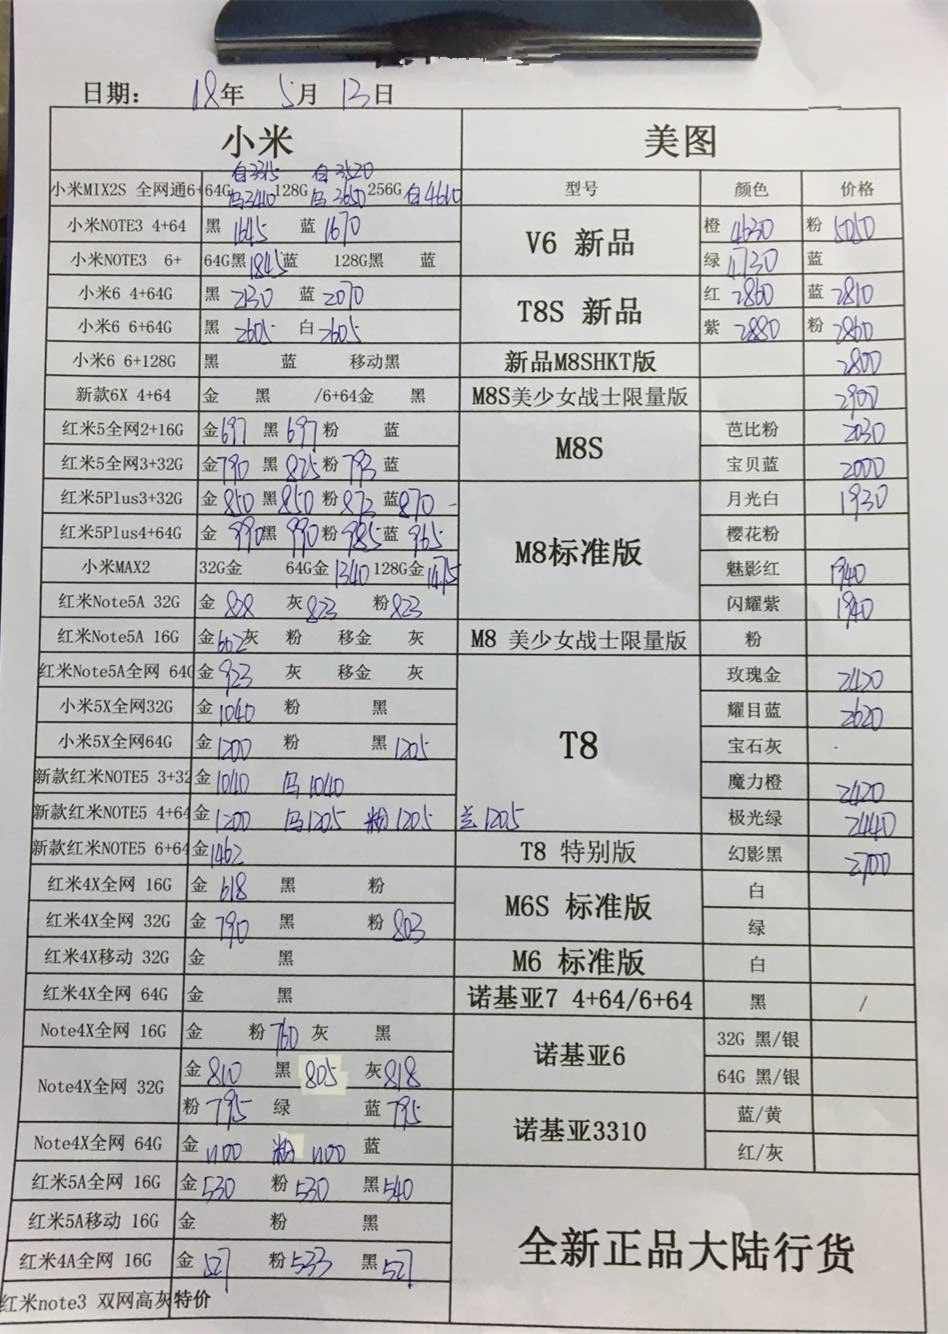 日期: 18年 5月 13日
小米 美图
白3315 白3520
小米MIX2S 全网通6+ 64G 乌3440 128G 乌3650 256G 白4610 型号 颜色 价格
小米NOTE3 4+64 黑 1645 蓝 1670 V6 新品 橙 4630 粉 5050
小米NOTE3 6+ 64G黑 1845 蓝 128G黑 蓝 绿 4730 蓝
小米6 4+64G 黑 2130 蓝 2070 T8S 新品 红 2860 蓝 2810
小米6 6+64G 黑 2605 白 2605 紫 2880 粉 2860
小米6 6+128G 黑 蓝 移动黑 新品M8SHKT版 2800
新款6X 4+64 金 黑 /6+64金 黑 M8S美少女战士限量版 2900
红米5全网2+16G 金 697 黑 697 粉 蓝 M8S 芭比粉 2030
红米5全网3+32G 金 790 黑 825 粉 793 蓝 宝贝蓝 2000
红米5Plus3+32G 金 850 黑 850 粉 873 蓝 870 M8标准版 月光白 1930
红米5Plus4+64G 金 990 黑 990 粉 985 蓝 965 樱花粉
小米MAX2 32G金 64G金 1340 128G金 1475 魅影红 1940
红米Note5A 32G 金 828 灰 823 粉 823 闪耀紫 1940
红米Note5A 16G 金 662 灰 粉 移金 灰 M8 美少女战士限量版 粉
红米Note5A全网 64G 金 923 灰 移金 灰 T8 玫瑰金 2420
小米5X全网32G 金 1040 粉 黑 耀目蓝 2620
小米5X全网64G 金 1200 粉 黑 1205 宝石灰
新款红米NOTE5 3+32 金 1040 乌1040 魔力橙 2420
新款红米NOTE5 4+64 金 1200 乌1205 粉1205 兰1205 极光绿 2440
新款红米NOTE5 6+64 金 1462 T8 特别版 幻影黑 2700
红米4X全网 16G 金 618 黑 粉 M6S 标准版 白
红米4X全网 32G 金 790 黑 粉 803 绿
红米4X移动 32G 金 黑 M6 标准版 白
红米4X全网 64G 金 黑 诺基亚7 4+64/6+64 黑 /
Note4X全网 16G 金 粉 760 灰 黑 诺基亚6 32G 黑/银
Note4X全网 32G 金 810 黑 805 灰 818 64G 黑/银
粉 795 绿 蓝 795 诺基亚3310 蓝/黄
Note4X全网 64G 金 1100 粉 1100 蓝 红/灰
红米5A全网 16G 金 530 粉 530 黑 540
红米5A移动 16G 金 粉 黑 全新正品大陆行货
红米4A全网 16G 金 527 粉 533 黑 527
红米note3 双网高灰特价